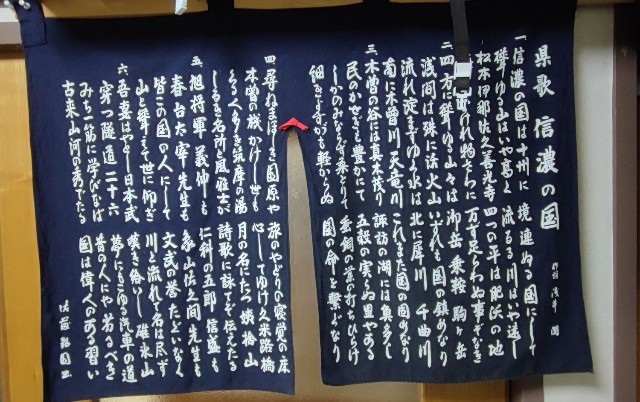 県歌 信濃の国
作詞 浅井 洌
一 信濃の国は十州に 境連ぬる国にして
聳ゆる山はいや高く 流るる川はいや遠し
松本伊那佐久善光寺 四つの平は肥沃の地
けれ物さわに 万ず足らわぬ事ぞなき
二 四方に聳ゆる山々は 御岳 乗鞍 駒ヶ岳
浅間は殊に活火山 いずれも国の鎮めなり
流れ淀まずゆく水は 北に犀川 千曲川
南に木曽川 天竜川 これまた国の固めなり
三 木曽の谷には真木茂り 諏訪の湖には魚多し
民のかせぎも豊かにて 五穀の実らぬ里やある
しかのみならず桑とりて 蚕飼の業の打ちひらけ
細きよすがも軽からぬ 国の命を繋ぐなり
四 尋ねまほしき園原や 旅のやどりの寝覚の床
木曽の桟かけし世も 心してゆけ久米路橋
くる人多き筑摩の湯 月の名にたつ姨捨山
しるき名所と風雅士が 詩歌に詠てぞ伝えたる
五 旭将軍 義仲も 仁科の五郎 信盛も
春台太宰先生も 象山佐久間先生も
皆この国の人にして 文武の誉たぐいなく
山と聳えて世に仰ぎ 川と流れて名は尽ず
六 吾妻はやとし日本武 嘆き給いし碓氷山
穿つ隧道二十六 夢にもこゆる汽車の道
みち一筋に学びなば 昔の人にや劣るべき
古来山河の秀でたる 国は偉人のある習い